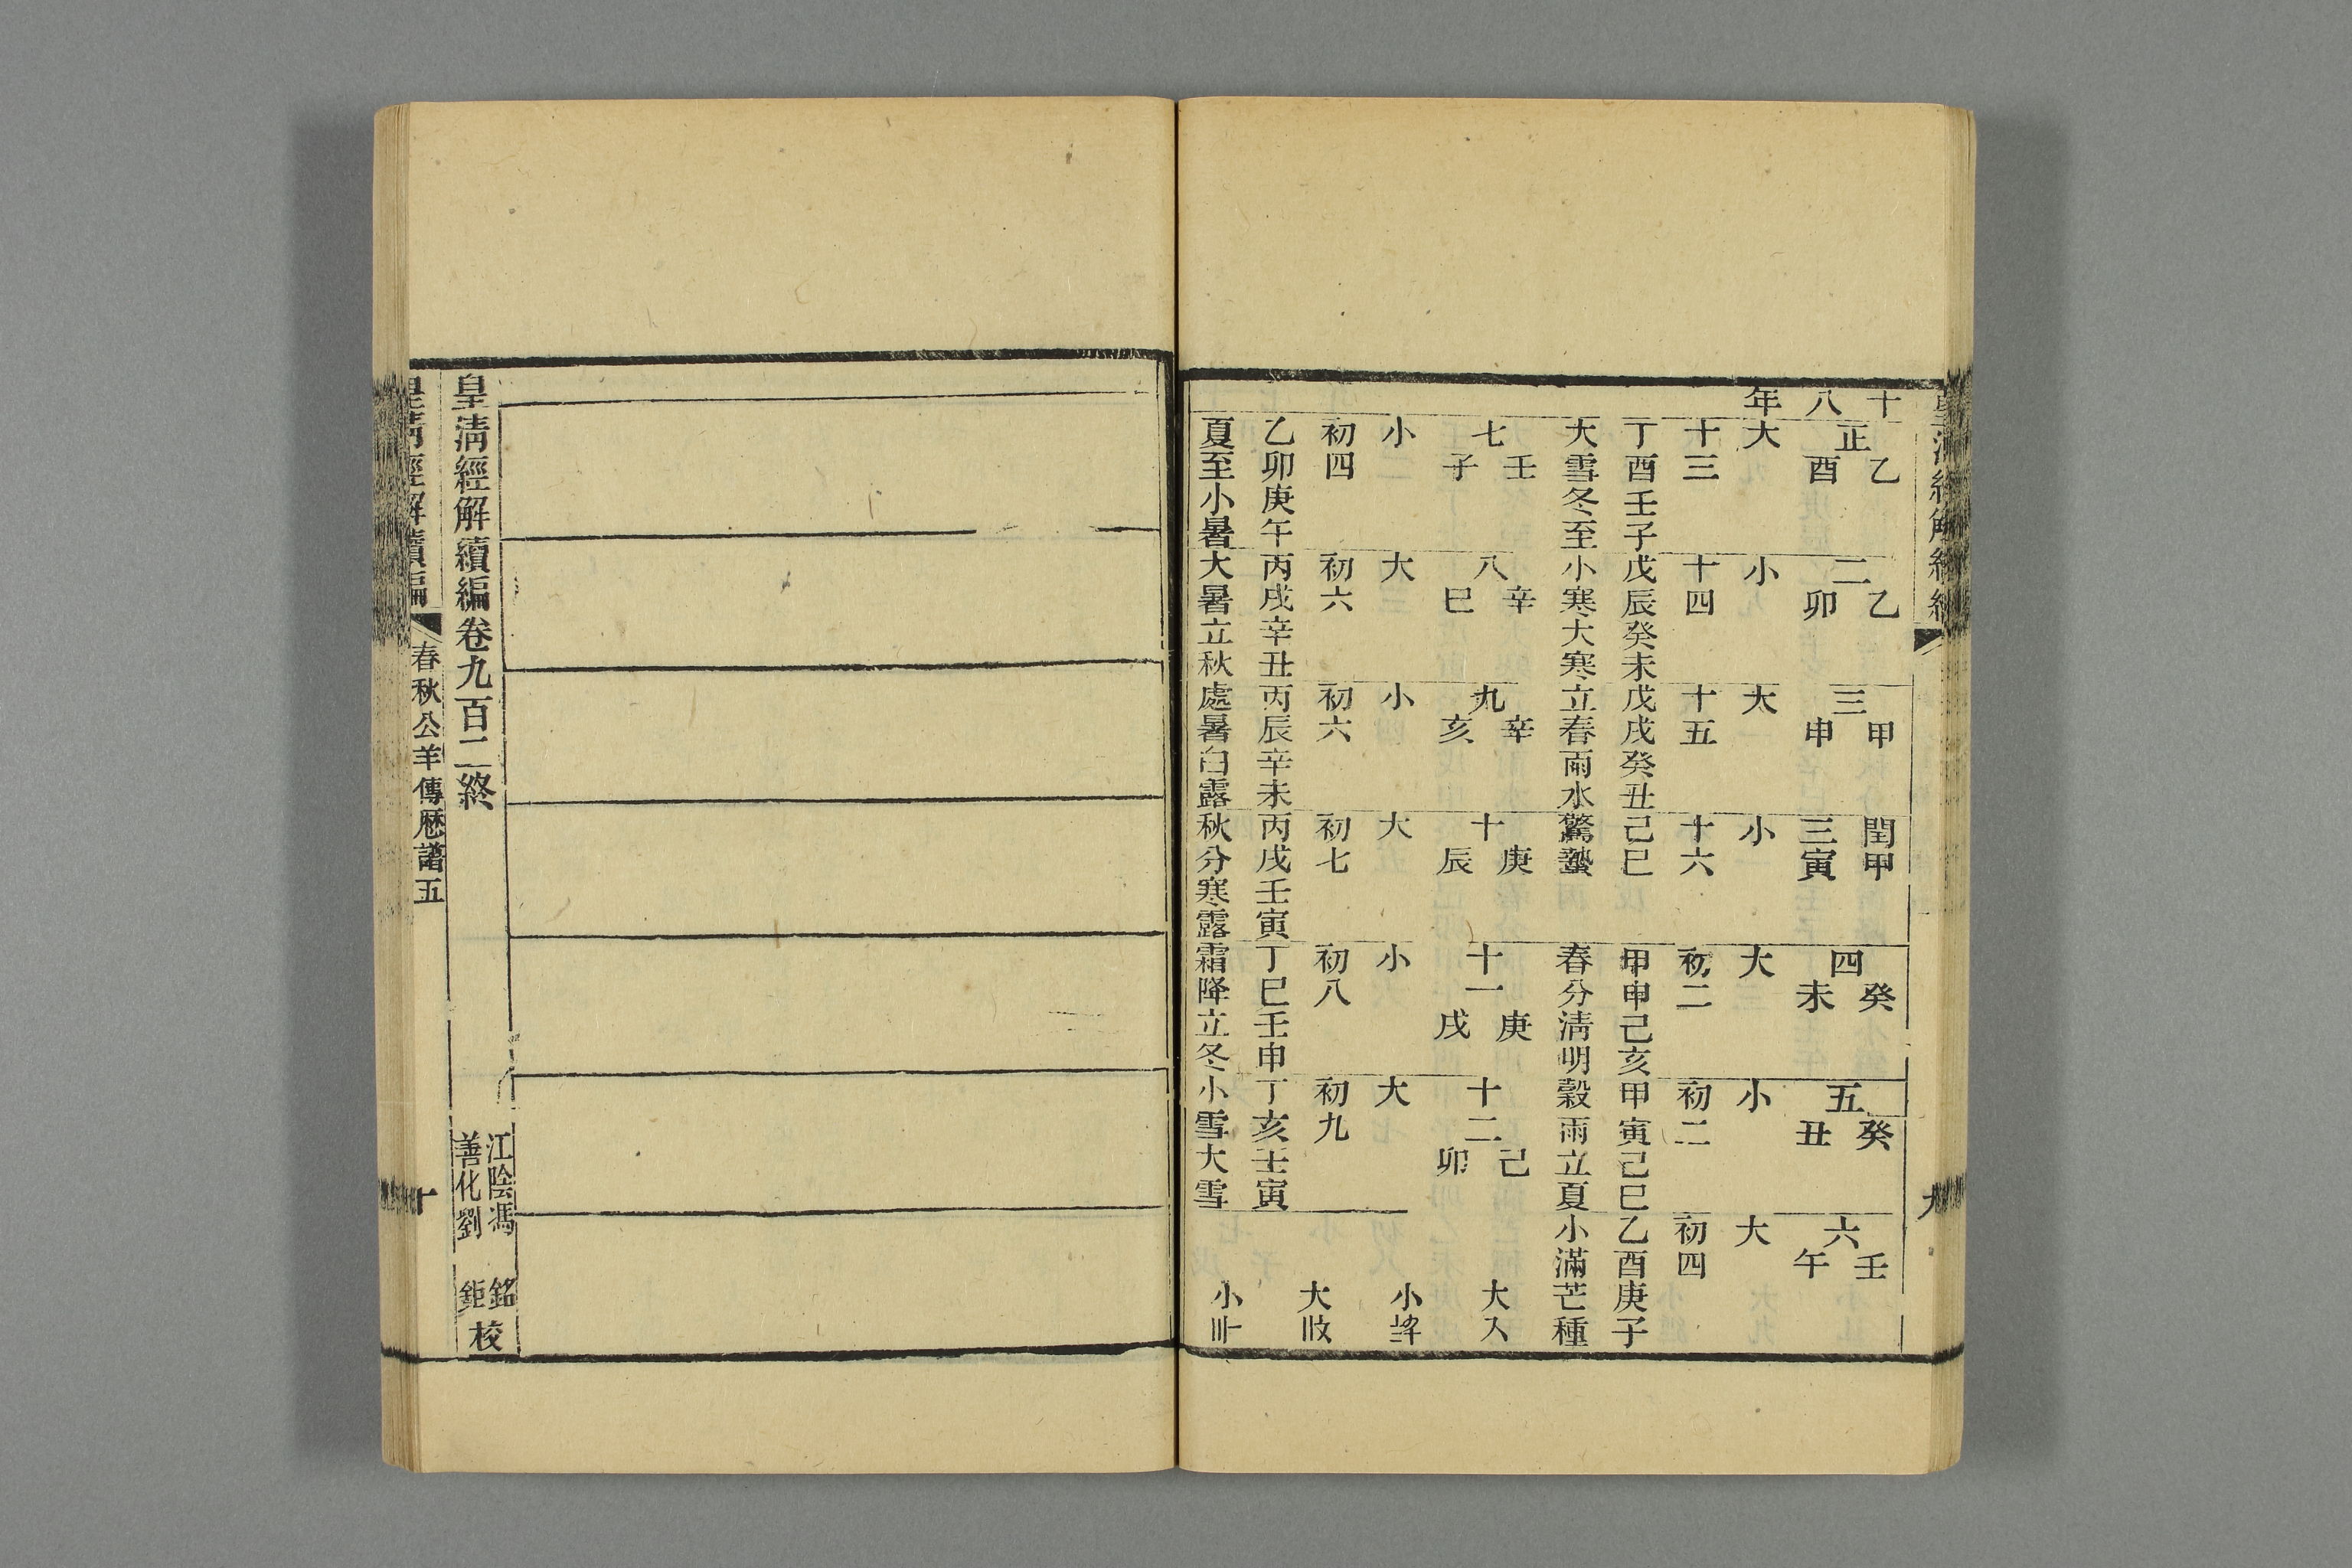 皇清經解續編
九
十八年
正乙酉 二乙卯 三甲申 閏三甲寅 四癸未 五癸丑 六壬午
大 小 大 小 大 小 大
十三 十四 十五 十六 初二 初二 初四
丁酉壬子 戊辰癸未 戊戌癸丑 己巳 甲申己亥 甲寅己巳 乙酉庚子
大雪冬至 小寒大寒 立春雨水 驚蟄 春分清明 穀雨立夏 小滿芒種
七壬子 八辛巳 九辛亥 十庚辰 十一庚戌 十二己卯 大
小 大 小 大 小 大 小
初四 初六 初六 初七 初八 初九 大
乙卯庚午 丙戌辛丑 丙辰辛未 丙戌壬寅 丁巳壬申 丁亥壬寅
夏至小暑 大暑立秋 處暑白露 秋分寒露 霜降立冬 小雪大雪 小
皇清經解續編卷九百二終
江陰馮銘
善化劉鉅
校
皇清經解續編 春秋公羊傳歷譜五 十